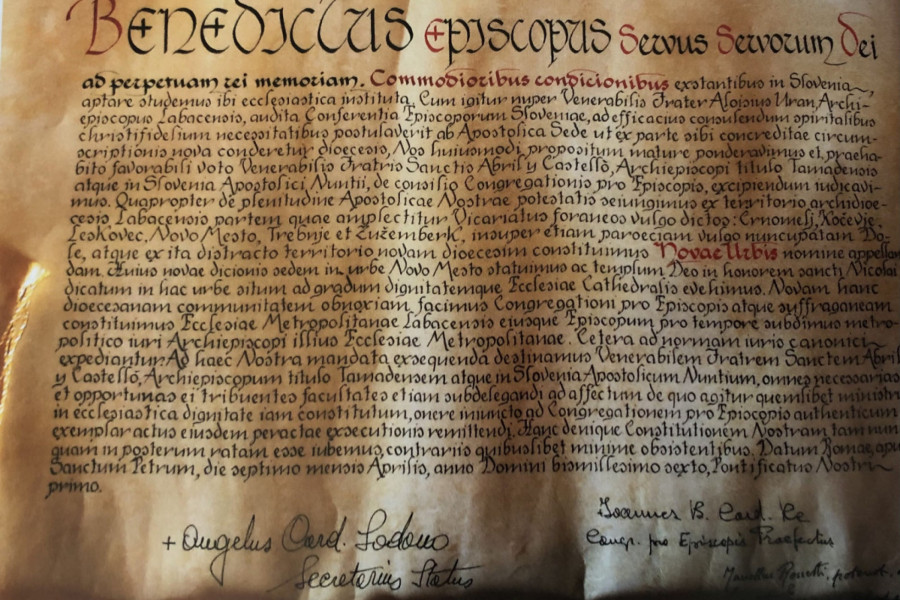 BENEDICTUS EPISCOPUS Servus Servorum Dei
ad perpetuam rei memoriam. Commodioribus condicionibus exstantibus in Slovenia,
aptare studemus ibi ecclesiastica instituta. Cum igitur nuper Venerabilis Frater Aloisius Uran, Archi-
episcopus Labacensis, audita Conferentia Episcoporum Sloveniae, ad efficacius consulendum spiritalibus
christifidelium necessitatibus postulaverit ab Apostolica Sede ut ex parte sibi concreditae circum-
scriptionis nova conderetur dioecesis, Nos huiusmodi propositum mature ponderavimus et, praeha-
bito favorabili voto Venerabilis Fratris Sanctis Abril y Castelló, Archiepiscopi titulo Tamadensis
atque in Slovenia Apostolici Nuntii, de consilio Congregationis pro Episcopis, excipiendum iudicavi-
mus. Quapropter de plenitudine Apostolicae Nostrae potestatis seiungimus ex territorio archidioe-
cesis Labacensis partem quae amplectitur Vicariatus foraneos vulgo dictos: Črnomelj, Kočevje,
Leskovec, Novo Mesto, Trebnje et Žužemberk, insuper etiam paroeciam vulgo nuncupatam Do-
le, atque ex ita distracto territorio novam dioecesim constituimus Novae Urbis nomine appellan
dam. Huius novae dicionis sedem in urbe Novo Mesto statuimus ac templum Deo in honorem sancti Nicolai
dicatum in hac urbe situm ad gradum dignitatemque Ecclesiae Cathedralis evehimus. Novam hanc
dioecesanam communitatem obnoxiam facimus Congregationi pro Episcopis atque suffraganeam
constituimus Ecclesiae Metropolitanae Labacensi eiusque Episcopum pro tempore subdimus metro-
politico iuri Archiepiscopi illius Ecclesiae Metropolitanae. Cetera ad normam iuris canonici
expediantur. Ad haec Nostra mandata exsequenda destinamus Venerabilem Fratrem Sanctem Abril
y Castelló, Archiepiscopum titulo Tamadensem atque in Slovenia Apostolicum Nuntium, omnes necessarias
et opportunas ei tribuentes facultates etiam subdelegandi ad affectum de quo agitur quemlibet ministr
in ecclesiastica dignitate iam constitutum, onere iniuncto ad Congregationem pro Episcopis authenticum
exemplar actus eiusdem peractae exsecutionis remittendi. Hanc denique Constitutionem Nostram tam nun
quam in posterum ratam esse iubemus, contrariis quibuslibet minime obsistentibus. Datum Romae, apu
Sanctum Petrum, die septimo mensis Aprilis, anno Domini bismillesimo sexto, Pontificatus Nostri
primo.
+ Angelus Card. Sodano
Secretarius Status
Ioannes B. Card. Re
Congr. pro Episcopis Praefectus